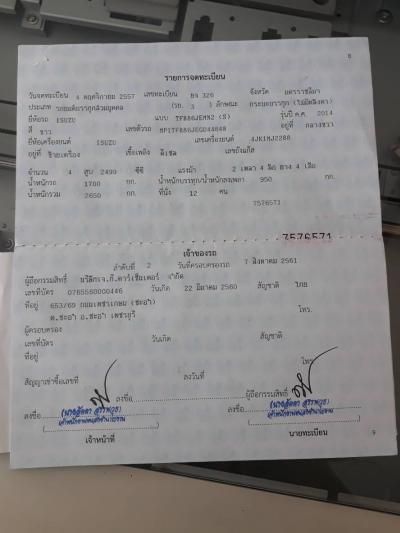 8
รายการจดทะเบียน
วันจดทะเบียน 4 พฤศจิกายน 2557 เลขทะเบียน 326 จังหวัด นครราชสีมา
ประเภท รถยนต์บรรทุกส่วนบุคคล (รย. 3 ) ลักษณะ กระบะบรรทุก (ไม่มีหลังคา)
ยี่ห้อรถ ISUZU แบบ รุ่นปี ค.ศ. 2014
สี ขาว เลขตัวรถ อยู่ที่ กลางขวา
ยี่ห้อเครื่องยนต์ ISUZU เลขเครื่องยนต์ 4JK1MJ2288
อยู่ที่ ซ้ายเครื่อง เชื้อเพลิง ดีเซล เลขถังแก๊ส
จำนวน 4 สูบ 2499 ซีซี แรงม้า 2 เพลา 4 ล้อ ยาง 4 เส้น
น้ำหนักรถ 1700 กก. น้ำหนักบรรทุก/น้ำหนักลงเพลา 950 กก.
น้ำหนักรวม 2650 กก. ที่นั่ง 12 คน
7576571
7576571
เจ้าของรถ
ลำดับที่ 2 วันที่ครอบครองรถ 7 สิงหาคม 2561
ผู้ถือกรรมสิทธิ์ จำกัด
เลขที่บัตร 0765560000446 วันเกิด 22 มีนาคม 2560 สัญชาติ ไทย
ที่อยู่ 653/69 ถนนเพชรเกษม (ชะอำ) โทร.
ต.ชะอำ อ.ชะอำ เพชรบุรี
ผู้ครอบครอง
เลขที่บัตร วันเกิด สัญชาติ
ที่อยู่
โทร.
สัญญาเช่าซื้อเลขที่ ลงวันที่
ลงชื่อ ผู้ถือกรรมสิทธิ์
ลงชื่อ ลงชื่อ
เจ้าหน้าที่ นายทะเบียน
9